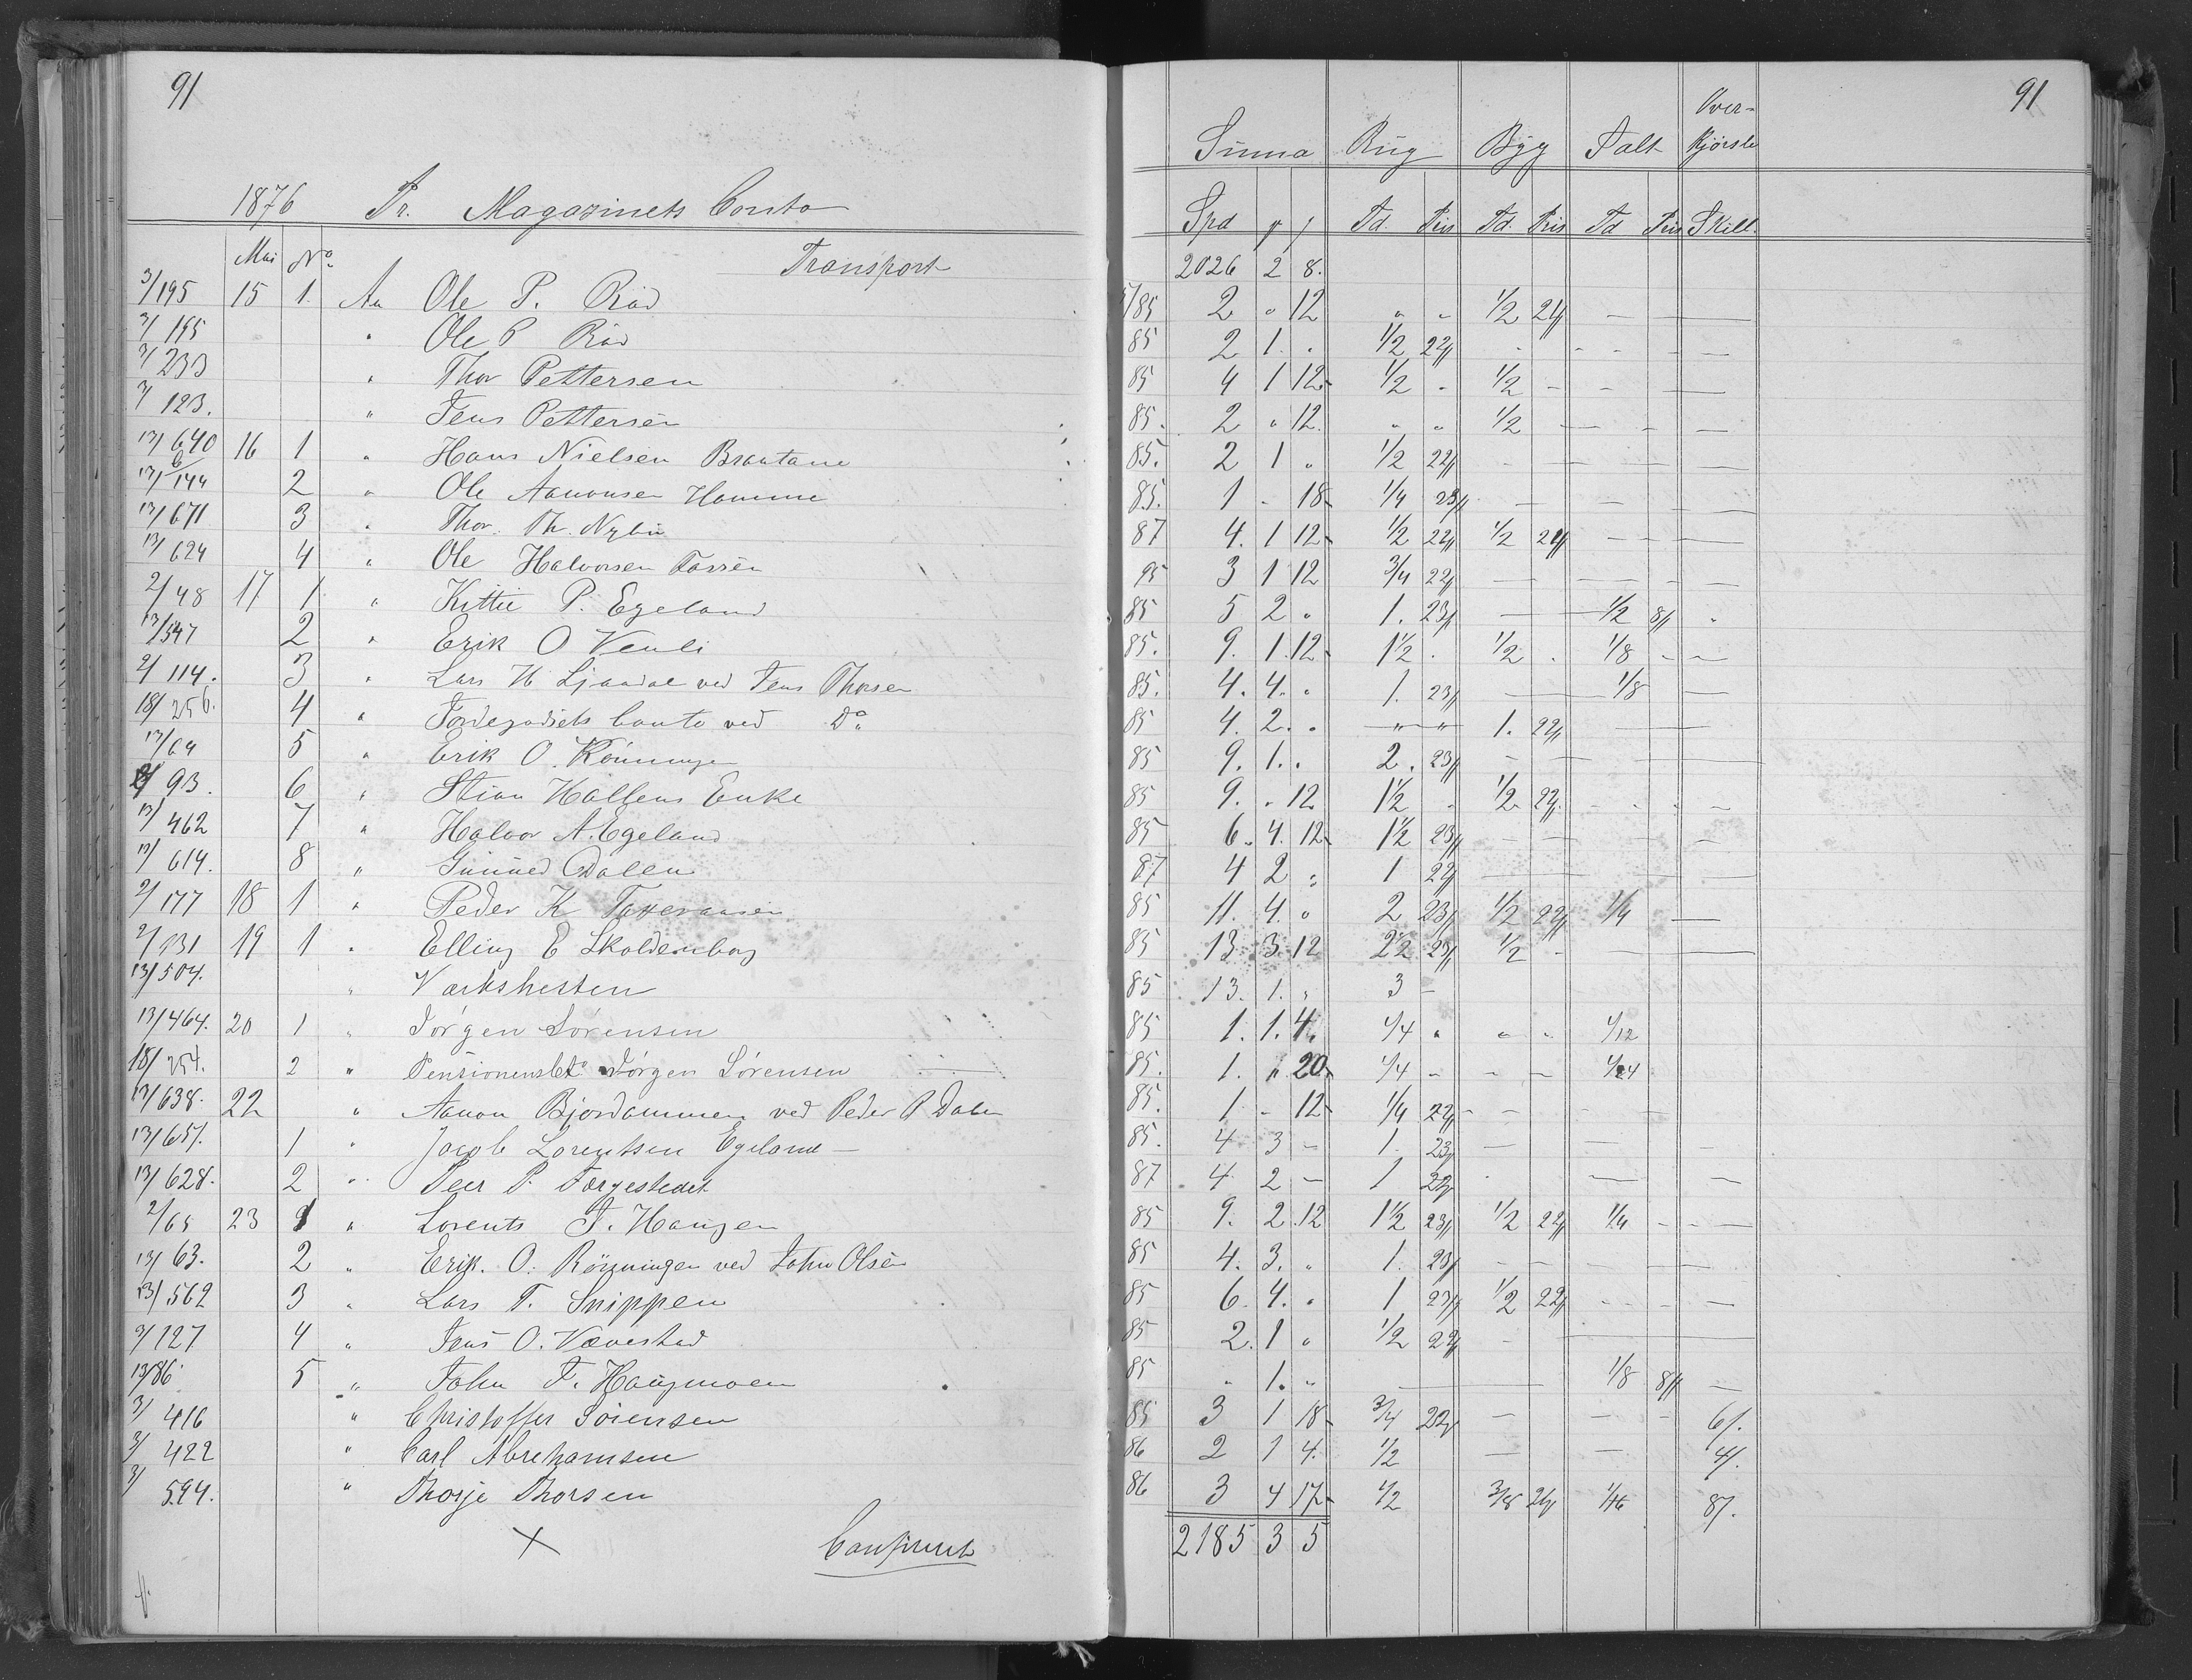 91
1876 Pr. Magazinets Conto
Mai No.
Transport
3/195 15 1. An Ole P. Röd
3/195 " Ole P Röd
3/233 " Thor Pettersen
3/123. " Jens Pettersen
13/640 16 1 " Hans Nielsen Braatane
13/144 2 " Ole Aanonsen Homme
13/671 3 " Thor. Th. Nybu
13/624 4 " Ole Halvorsen
2/48 17 1 " Kittil P. Egeland
13/547 2 " Erik O Venli
2/114. 3 " Lars H Ljaadal ved Jens Thorsen
18/256. 4 " Jordegodsets Conto ved Do
13/64 5 " Erik O. Rönningen
2/93. 6 " Stian Haltens Enke
13/462 7 " Halvor A. Egeland
13/614. 8 " Gunned Dalen
2/177 18 1 " Peder K
2/131 19 1 " Elling E Skoldenborg
13/504. " Værkshesten
13/464. 20 1 " Jörgen Sörensen
18/254. 2 " Jörgen Sörensen
13/638. 22 " Aanon Bjordammen ved Peder P Dalen
13/651. 1 " Jacob Lorentsen Egeland —
13/628. 2 " Peer P. Færgestedet
2/65 23 1 " Lorents J. Haugen
13/63. 2 " Erik. O. Rönningen ved John Olsen
13/562 3 " Lars T. Snippen
3/127 4 " Jens O. Vævestad
13/86. 5 " John J. Haugmoen
3/416 " Christoffer Sörensen
3/422 " Carl Abrehamsen
3/594. " Thorje Thorsen
X
91
Summa Rug Byg Salt Over-kjørsle
Spd Td. Pris Td. Pris Td Pris Skill.
2026 2 8.
85 2 " 12 " " 1/2 21
85 2 1 . 1/2 22 - - - - —
85 4 1 12 1/2 - 1/2 - - —
85. 2 " 12. " " 1/2 — - —
85. 2 1 " 1/2 22 - — — —
85. 1 - 18 1/4 23 — — —
87 4. 1 12 1/2 22 1/2 21 - - — —
95 3 1 12 3/4 22 — — - —
85 5 2 " 1. 23 — 1/2 8 "
85. 9. 1. 12 1 1/2 . 1/2 . 1/8 - —
85. 4. 4. " 1. 23 — 1/8 —
85 4. 2. . " " 1. 22 —
85 9. 1. . 2. 23 - — — —
85 9. " 12 1 1/2 . 1/2 22 - - - —
85 6. 4. 12 1 1/2 23 - — — -
87 4 2 " 1 22 — —
85 11. 4. " 2 23 1/2 22 1/4 —
85 13 3 12 2 1/2 23 1/2 - — —
85 13. 1. " 3 -
85 1. 1. 4. 1/4 " " " 1/12
85. 1. " 20 1/4 - - - 1/24
85. 1 - 12 1/4 22 - - - - —
85. 4 3 - 1. 23 — — -
87 4 2 - 1 22 - — —
85 9. 2 12 1 1/2 23 1/2 22 1/4 - - —
85 4. 3. " 1. 23 - - - — —
85 6. 4. " 1 23 1/2 22 - - - —
85 2. 1 " 1/2 22 - —
85 " 1. " — — 1/8 8 —
85 3 1 18 3/4 22 — — - 6/.
86 2 1 4. 1/2 — — 4/.
86 3 4 17 1/2 3/8 21 1/16 8/.
2185 3 5